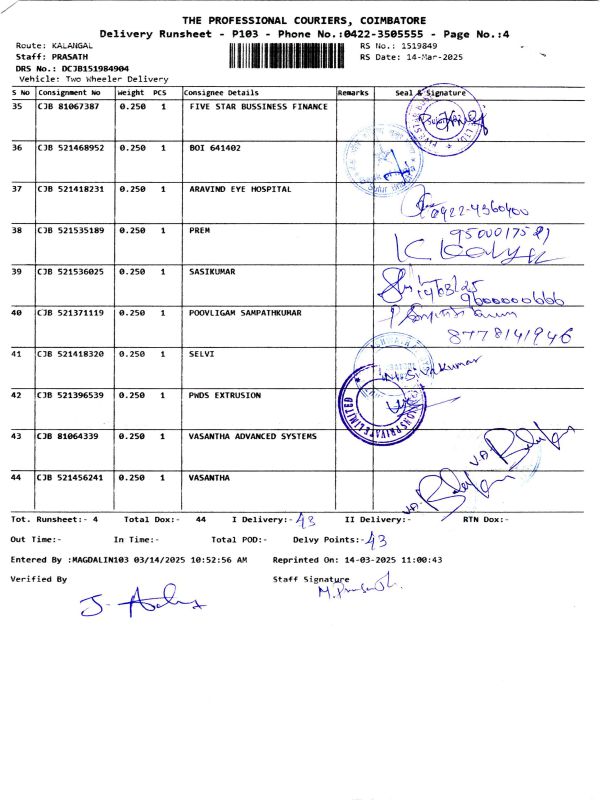 THE PROFESSIONAL COURIERS, COIMBATORE
Delivery Runsheet - P103 - Phone No.:0422-3505555 - Page No.:4
Route: KALANGAL RS No.: 1519849
Staff: PRASATH RS Date: 14-Mar-2025
DRS No.: DCJB151984904
Vehicle: Two Wheeler Delivery
S No Consignment No Weight PCS Consignee Details Remarks Seal & Signature
35 CJB 81067387 0.250 1 FIVE STAR BUSSINESS FINANCE
36 CJB 521468952 0.250 1 BOI 641402
37 CJB 521418231 0.250 1 ARAVIND EYE HOSPITAL
0422-4360400
38 CJB 521535189 0.250 1 PREM
39 CJB 521536025 0.250 1 SASIKUMAR
14/03/25
9600000666
40 CJB 521371119 0.250 1 POOVLIGAM SAMPATHKUMAR
8778141946
41 CJB 521418320 0.250 1 SELVI
M. Sivakumar
42 CJB 521396539 0.250 1 PWDS EXTRUSION
PRIVATE LIMITED
43 CJB 81064339 0.250 1 VASANTHA ADVANCED SYSTEMS
44 CJB 521456241 0.250 1 VASANTHA
Tot. Runsheet:- 4 Total Dox:- 44 I Delivery:- 43 II Delivery:- RTN Dox:-
Out Time:- In Time:- Total POD:- Delvy Points:- 43
Entered By :MAGDALIN103 03/14/2025 10:52:56 AM Reprinted On: 14-03-2025 11:00:43
Verified By Staff Signature